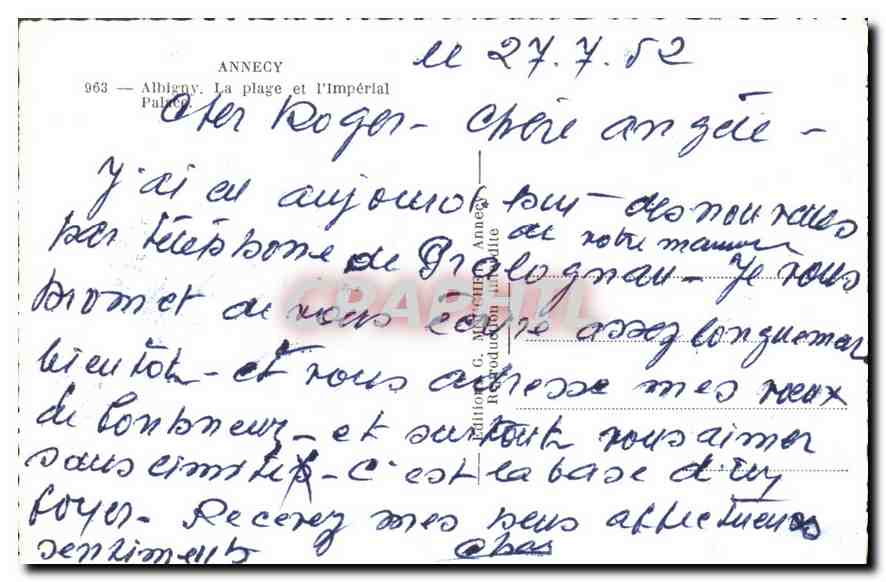 ANNECY
963 — Albigny. La plage et l'Impérial
Palace.
le 27.7.52
Cher Roger - Chère Angèle -
J'ai eu aujourd'hui des nouvelles
par téléphone de Pralognan - Je vous
de votre maman
promet de vous écrire assez longuement
bientôt - et vous adresse mes vœux
de bonheur - et surtout vous aimer
sans limites - C'est la base d'un
foyer - Recevez mes plus affectueux
sentiments
Édition G. Annecy
Reproduction interdite
CRAPHTL